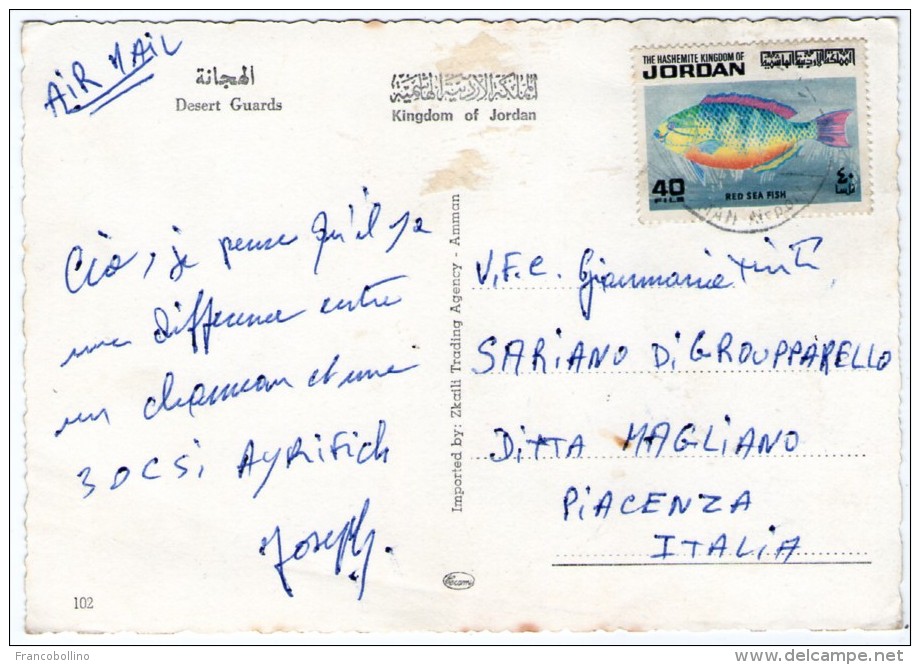 AIR MAIL
الهجانة
Desert Guards
المملكة الأردنية الهاشمية
Kingdom of Jordan
THE HASHEMITE KINGDOM OF
JORDAN
المملكة الأردنية الهاشمية
40
FILS
٤٠
فلسا
RED SEA FISH
Cio, je pense qu'il ya
une difference entre
un chameau et une
3 DCSi AYRIFICH
Joseph.
102
Imported by: Zkaili Trading Agency - Amman
V.F.C. Gianmaria
SARIANO Di GROUPPARELLO
DiTTA MAGLIANO
PiACENZA
ITALiA
Francobollino
www.delcampe.net